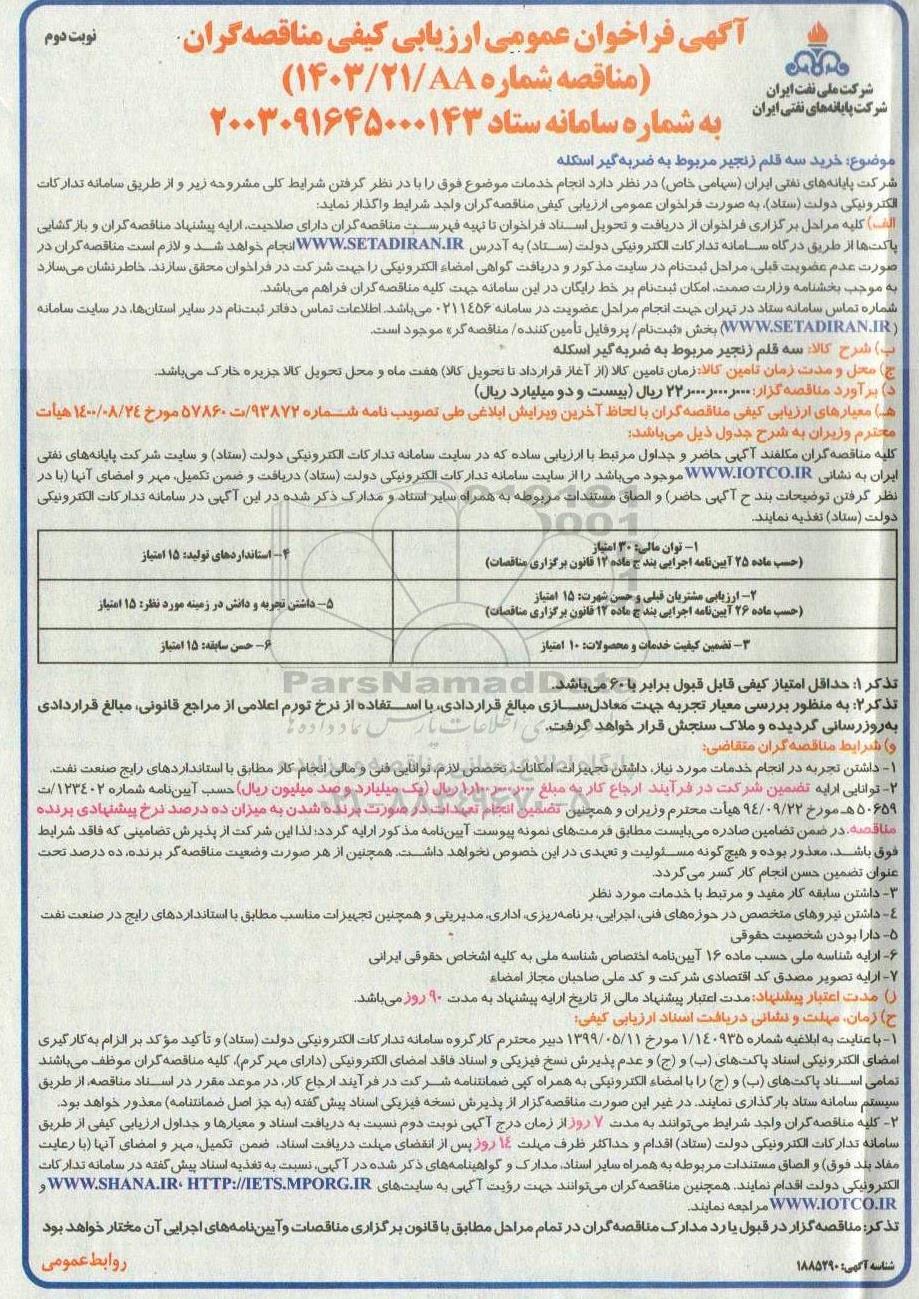 آگهی فراخوان عمومی ارزیابی کیفی مناقصه‌گران
نوبت دوم
(مناقصه شماره ۱۴۰۳/۲۱/AA)
به شماره سامانه ستاد ۲۰۰۳۰۹۱۶۴۵۰۰۰۱۴۳
شرکت ملی نفت ایران
شرکت پایانه‌های نفتی ایران
موضوع: خرید سه قلم زنجیر مربوط به ضربه‌گیر اسکله
شرکت پایانه‌های نفتی ایران (سهامی خاص) در نظر دارد انجام خدمات موضوع فوق را با در نظر گرفتن شرایط کلی مشروحه زیر و از طریق سامانه تدارکات
الکترونیکی دولت (ستاد)، به صورت فراخوان عمومی ارزیابی کیفی مناقصه‌گران واجد شرایط واگذار نماید:
الف) کلیه مراحل برگزاری فراخوان از دریافت و تحویل اسناد فراخوان تا تهیه فهرست مناقصه‌گران دارای صلاحیت، ارایه پیشنهاد مناقصه‌گران و بازگشایی
پاکت‌ها از طریق درگاه سامانه تدارکات الکترونیکی دولت (ستاد) به آدرس WWW.SETADIRAN.IR انجام خواهد شد و لازم است مناقصه‌گران در
صورت عدم عضویت قبلی، مراحل ثبت‌نام در سایت مذکور و دریافت گواهی امضاء الکترونیکی را جهت شرکت در فراخوان محقق سازند. خاطرنشان می‌سازد
به موجب بخشنامه وزارت صمت، امکان ثبت‌نام بر خط رایگان در این سامانه جهت کلیه مناقصه‌گران فراهم می‌باشد.
شماره تماس سامانه ستاد در تهران جهت انجام مراحل عضویت در سامانه ۰۲۱۱۴۵۶ می‌باشد. اطلاعات تماس دفاتر ثبت‌نام در سایر استان‌ها، در سایت سامانه
(WWW.SETADIRAN.IR) بخش «ثبت‌نام/ پروفایل تأمین‌کننده/ مناقصه‌گر» موجود است.
ب) شرح کالا: سه قلم زنجیر مربوط به ضربه‌گیر اسکله
ج) محل و مدت زمان تامین کالا: زمان تامین کالا (از آغاز قرارداد تا تحویل کالا) هفت ماه و محل تحویل کالا جزیره خارک می‌باشد.
د) برآورد مناقصه‌گزار: ۲۲٫۰۰۰٫۰۰۰٫۰۰۰ ریال (بیست و دو میلیارد ریال)
هـ) معیارهای ارزیابی کیفی مناقصه‌گران با لحاظ آخرین ویرایش ابلاغی طی تصویب نامه شماره ۹۳۸۷۲/ت ۵۷۸۶۰ مورخ ۱۴۰۰/۰۸/۲۴ هیأت
محترم وزیران به شرح جدول ذیل می‌باشد:
کلیه مناقصه‌گران مکلفند آگهی حاضر و جداول مرتبط با ارزیابی ساده که در سایت سامانه تدارکات الکترونیکی دولت (ستاد) و سایت شرکت پایانه‌های نفتی
ایران به نشانی WWW.IOTCO.IR موجود می‌باشد را از سایت سامانه تدارکات الکترونیکی دولت (ستاد) دریافت و ضمن تکمیل، مهر و امضای آنها (با در
نظر گرفتن توضیحات بند ح آگهی حاضر) و الصاق مستندات مربوطه به همراه سایر اسناد و مدارک ذکر شده در این آگهی در سامانه تدارکات الکترونیکی
دولت (ستاد) تغذیه نمایند.
۱- توان مالی: ۳۰ امتیاز
(حسب ماده ۲۵ آیین‌نامه اجرایی بند ج ماده ۱۲ قانون برگزاری مناقصات)
۴- استانداردهای تولید: ۱۵ امتیاز
۲- ارزیابی مشتریان قبلی و حسن شهرت: ۱۵ امتیاز
(حسب ماده ۲۶ آیین‌نامه اجرایی بند ج ماده ۱۲ قانون برگزاری مناقصات)
۵- داشتن تجربه و دانش در زمینه مورد نظر: ۱۵ امتیاز
۳- تضمین کیفیت خدمات و محصولات: ۱۰ امتیاز
۶- حسن سابقه: ۱۵ امتیاز
ParsNamadData
تذکر ۱: حداقل امتیاز کیفی قابل قبول برابر با ۶۰ می‌باشد.
تذکر۲: به منظور بررسی معیار تجربه جهت معادل‌سازی مبالغ قراردادی، با استفاده از نرخ تورم اعلامی از مراجع قانونی، مبالغ قراردادی
به‌روزرسانی گردیده و ملاک سنجش قرار خواهد گرفت.
و) شرایط مناقصه‌گران متقاضی:
۱- داشتن تجربه در انجام خدمات مورد نیاز، داشتن تجهیزات، امکانات، تخصص لازم، توانایی فنی و مالی انجام کار مطابق با استانداردهای رایج صنعت نفت.
۲- توانایی ارایه تضمین شرکت در فرآیند ارجاع کار به مبلغ ۱٫۱۰۰٫۰۰۰٫۰۰۰ ریال (یک میلیارد و صد میلیون ریال) حسب آیین‌نامه شماره ۱۲۳۴۰۲/ت
۵۰۶۵۹ هـ مورخ ۹۴/۰۹/۲۲ هیأت محترم وزیران و همچنین تضمین انجام تعهدات در صورت برنده شدن به میزان ده درصد نرخ پیشنهادی برنده
مناقصه. در ضمن تضامین صادره می‌بایست مطابق فرمت‌های نمونه پیوست آیین‌نامه مذکور ارایه گردد؛ لذا این شرکت از پذیرش تضامینی که فاقد شرایط
فوق باشد، معذور بوده و هیچ‌گونه مسئولیت و تعهدی در این خصوص نخواهد داشت. همچنین از هر صورت وضعیت مناقصه‌گر برنده، ده درصد تحت
عنوان تضمین حسن انجام کار کسر می‌گردد.
۳- داشتن سابقه کار مفید و مرتبط با خدمات مورد نظر
۴- داشتن نیروهای متخصص در حوزه‌های فنی، اجرایی، برنامه‌ریزی، اداری، مدیریتی و همچنین تجهیزات مناسب مطابق با استانداردهای رایج در صنعت نفت
۵- دارا بودن شخصیت حقوقی
۶- ارایه شناسه ملی حسب ماده ۱۶ آیین‌نامه اختصاص شناسه ملی به کلیه اشخاص حقوقی ایرانی
۷- ارایه تصویر مصدق کد اقتصادی شرکت و کد ملی صاحبان مجاز امضاء
ز) مدت اعتبار پیشنهاد: مدت اعتبار پیشنهاد مالی از تاریخ ارایه پیشنهاد به مدت ۹۰ روز می‌باشد.
ح) زمان، مهلت و نشانی دریافت اسناد ارزیابی کیفی:
۱- با عنایت به ابلاغیه شماره ۱/۱۴۰۹۳۵ مورخ ۱۳۹۹/۰۵/۱۱ دبیر محترم کارگروه سامانه تدارکات الکترونیکی دولت (ستاد) و تأکید مؤکد بر الزام به‌کارگیری
امضای الکترونیکی اسناد پاکت‌های (ب) و (ج) و عدم پذیرش نسخ فیزیکی و اسناد فاقد امضای الکترونیکی (دارای مهر گرم)، کلیه مناقصه‌گران موظف می‌باشند
تمامی اسناد پاکت‌های (ب) و (ج) را با امضاء الکترونیکی به همراه کپی ضمانتنامه شرکت در فرآیند ارجاع کار، در موعد مقرر در اسناد مناقصه، از طریق
سیستم سامانه ستاد بارگذاری نمایند. در غیر این صورت مناقصه‌گزار از پذیرش نسخه فیزیکی اسناد پیش گفته (به جز اصل ضمانتنامه) معذور خواهد بود.
۲- کلیه مناقصه‌گران واجد شرایط می‌توانند به مدت ۷ روز از زمان درج آگهی نوبت دوم نسبت به دریافت اسناد و معیارها و جداول ارزیابی کیفی از طریق
سامانه تدارکات الکترونیکی دولت (ستاد) اقدام و حداکثر ظرف مهلت ۱۴ روز پس از انقضای مهلت دریافت اسناد، ضمن تکمیل، مهر و امضای آنها (با رعایت
مفاد بند فوق) و الصاق مستندات مربوطه به همراه سایر اسناد، مدارک و گواهینامه‌های ذکر شده در آگهی، نسبت به تغذیه اسناد پیش گفته در سامانه تدارکات
الکترونیکی دولت اقدام نمایند. همچنین مناقصه‌گران می‌توانند جهت رؤیت آگهی به سایت‌های WWW.SHANA.IR، HTTP://IETS.MPORG.IR و
WWW.IOTCO.IR مراجعه نمایند.
تذکر: مناقصه‌گزار در قبول یا رد مدارک مناقصه‌گران در تمام مراحل مطابق با قانون برگزاری مناقصات وآیین‌نامه‌های اجرایی آن مختار خواهد بود
شناسه آگهی: ۱۸۸۵۲۹۰
روابط عمومی